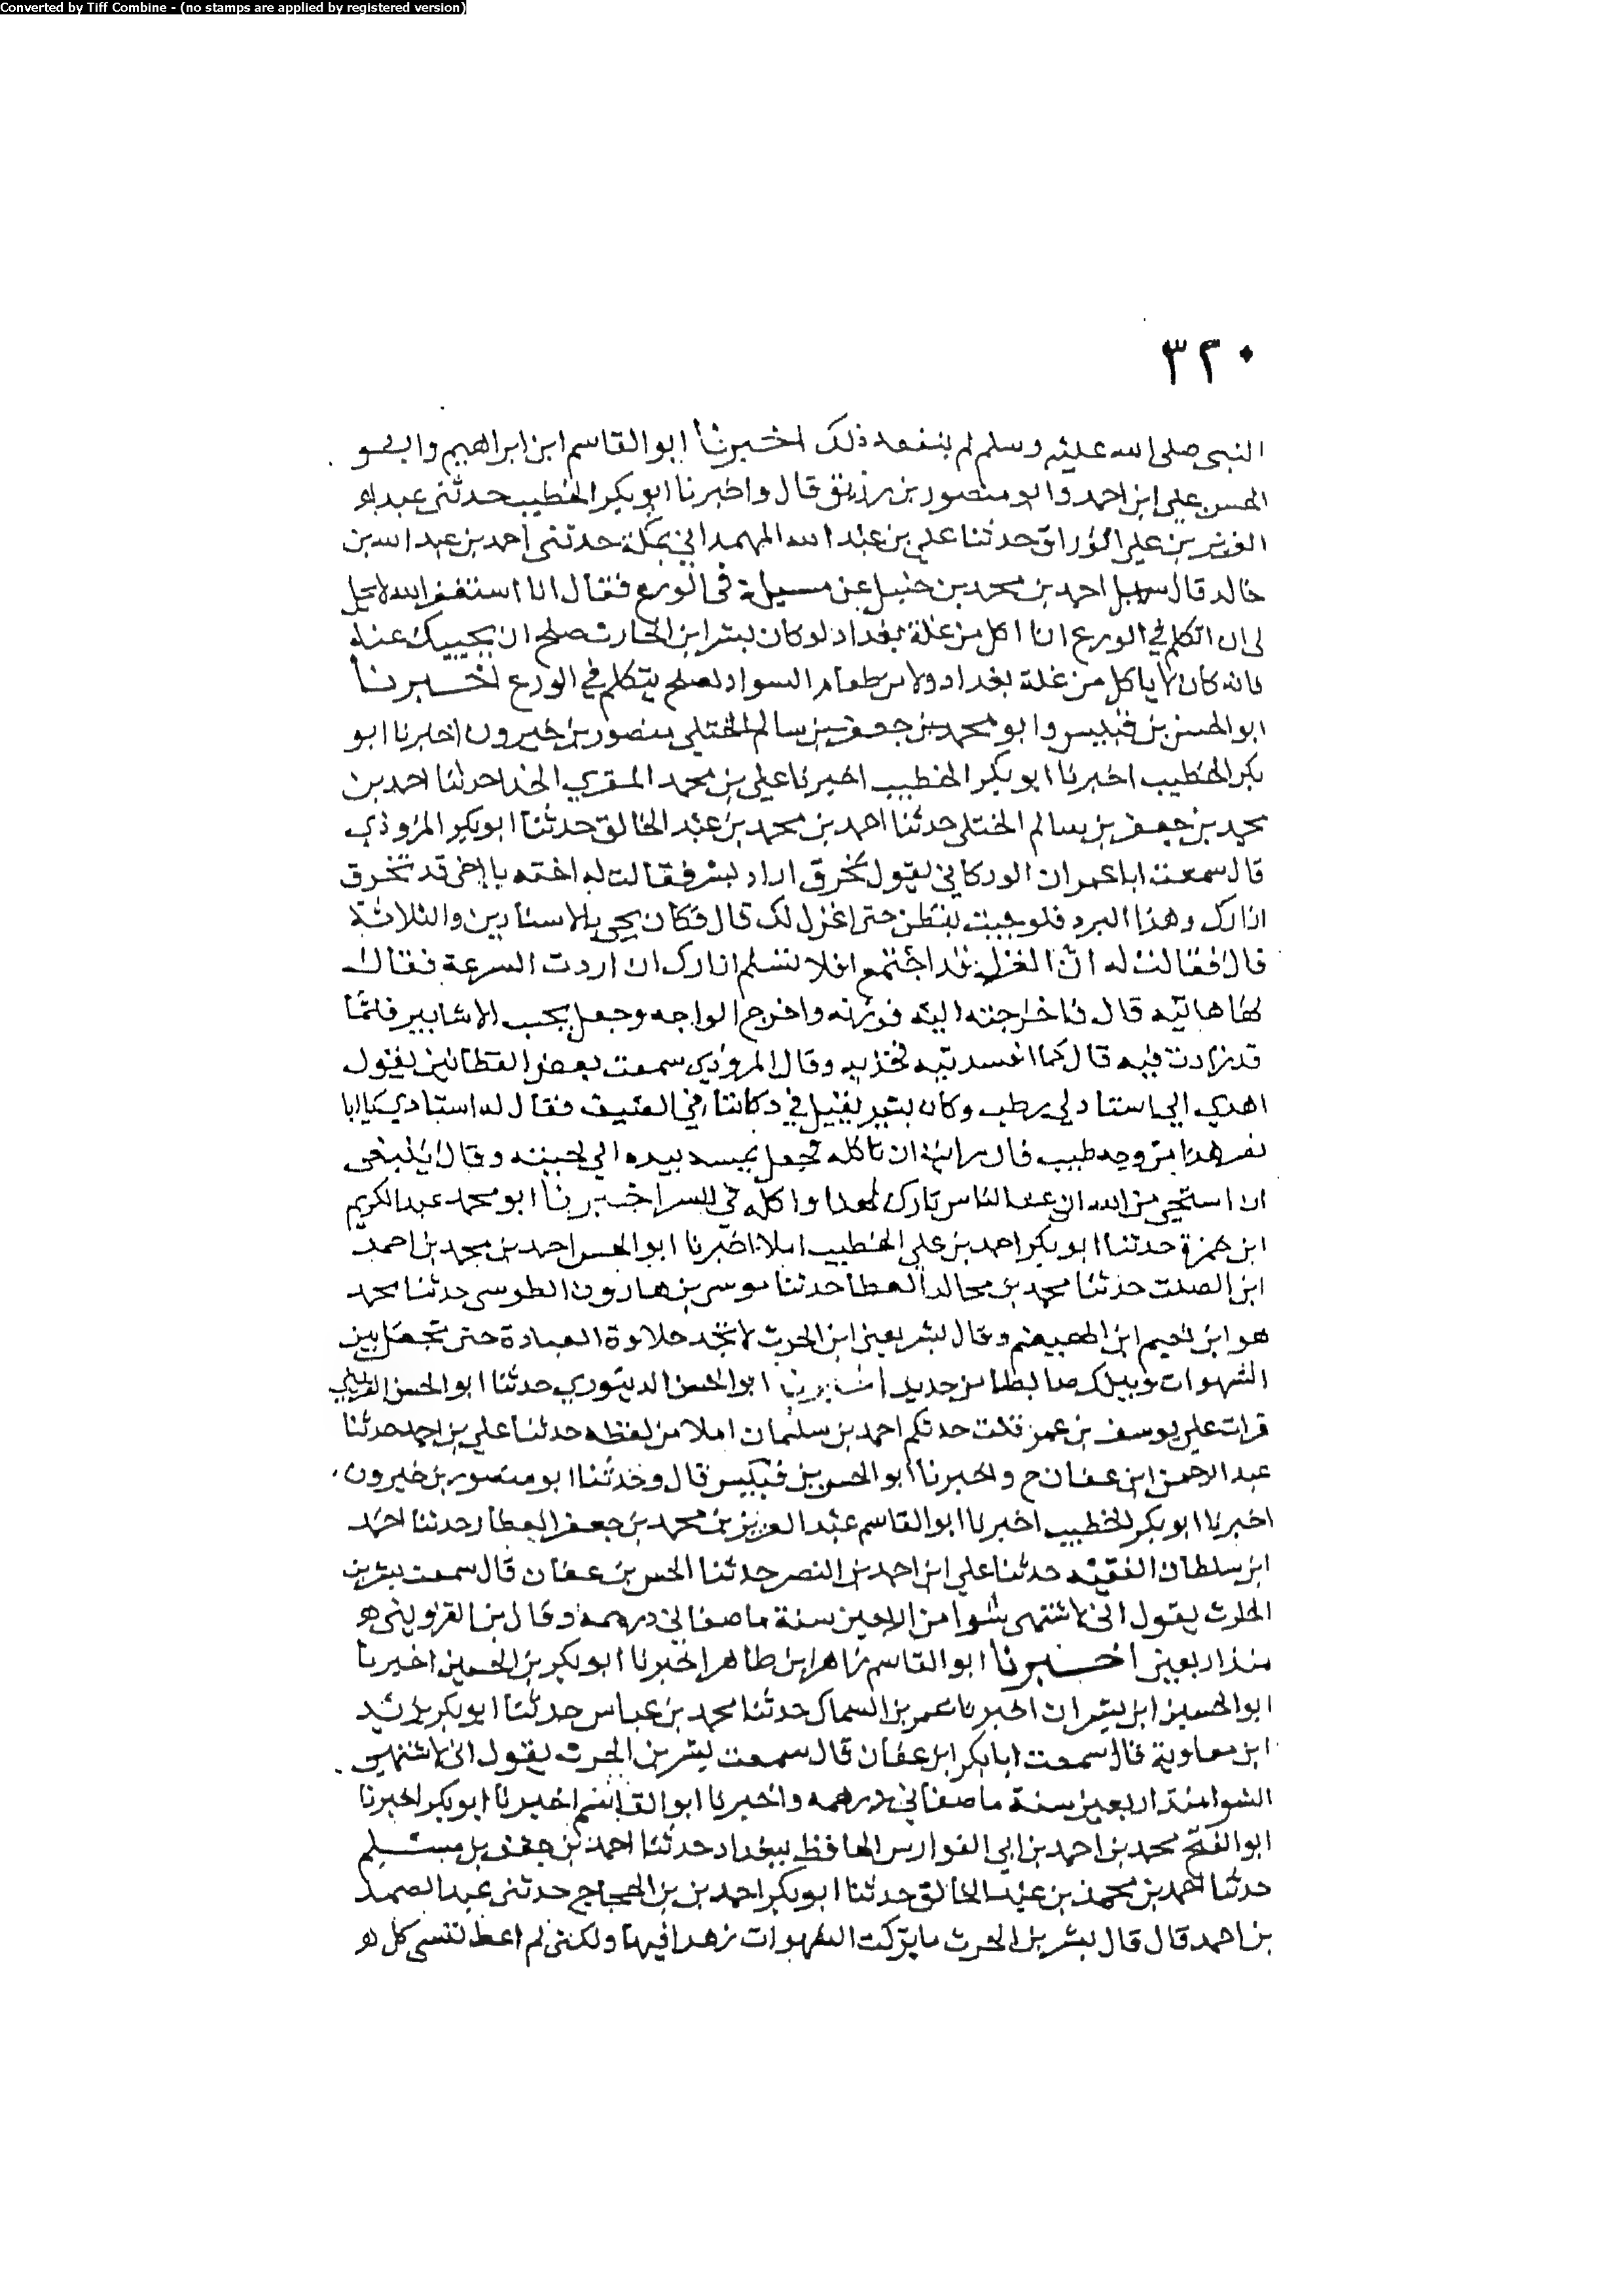 Converted by Tiff Combine - (no stamps are applied by registered version)
٣٢٠
النبي صلى الله عليه وسلم لم ينفعه ذلك اخبرنا ابو القاسم ابن ابراهيم وابو
الحسن علي ابن احمد وابو منصور بن رزيق قال واخبرنا ابو بكر الخطيب حدثني عبد
بن علي الوراق حدثنا علي بن عبد الله الهمداني بمكة حدثني احمد بن عبد الله بن
خالد قال سيل احمد بن محمد بن حنبل عن مسيلة في الورع فقال انا استغفر الله لا يحل
لي ان اتكلم في الورع انا اكل من غلة بغداد لو كان بشر ابن الحارث صلح ان يجيبك عنه
فانه كان لا ياكل من غلة بغداد ولا من طعام السواد يصلح يتكلم في الورع اخبرنا
ابو الحسن بن قبيس وابو محمد بن جعفر بن سالم الختلي منصور بن خيرون اخبرنا ابو
بكر الخطيب اخبرنا ابو بكر الخطيب اخبرنا علي بن محمد المقري الحذا حدثنا احمد بن
محمد بن جعفر بن سالم الختلي حدثنا احمد بن محمد بن عبد الخالق حدثنا ابو بكر المروذي
قال سمعت ابا عمران الوركاني يقول تخرق ازار بشر فقالت له اخته يا اخي قد تخرق
ازارك وهذا البرد فلو جيت بقطن حتى اغزل لك قال فكان يجي بالاستارين والثلاثة
قال فقالت له ان الغزل قد اجتمع افلا تسلم ازارك ان اردت السرعة فقال
لها هاتيه قال فاخرجته اليه فوزنه واخرج الواحه وجعل يحسب الاساتير فلما
قد زادت فيه قال كما افسدتيه فخذيه وقال المروذي سمعت بعض القطانين يقول
اهدي الي استاد لي رطب وكان بشر يقيل في دكاننا في الصيف فقال له استادي يا ابا
نصر هذا من وجه طيب فان رايت ان تاكله فجعل يمسه بيده الي لحيته وقال ينبغي
ان استحي من الله اني عند الناس تارك لهذا واكله في السر اخبرنا ابو محمد عبد الكريم
ابن حمزة حدثنا ابو بكر احمد بن علي الخطيب املا اخبرنا ابو الحسن احمد بن محمد بن احمد
ابن الصلت حدثنا محمد بن مخالد العطا حدثنا موسى بن هارون الطوسي حدثنا محمد
هو ابن نعيم ابن الهيصم وقال بشر يعني ابن الحرث لا تجد حلاوة العبادة حتى تجعل بين
الشهوات وبينك حايطا من حديد اخبرنا ابو الحسن الدينوري حدثنا ابو الحسن القزويني
قرات على يوسف بن عمر قلت حدثكم احمد بن سليمان املا من لفظه حدثنا علي بن احمد حدثنا
عبد الرحمن ابن عفان ح واخبرنا ابو الحسن بن قبيس قال وحدثنا ابو منصور بن خيرون
اخبرنا ابو بكر الخطيب اخبرنا ابو القاسم عبد العزيز بن محمد بن جعفر العطار حدثنا احمد
ابن سلطان الفقيه حدثنا علي ابن احمد بن النصر حدثنا الحسن بن عفان قال سمعت بشر بن
الحارث يقول اني لاشتهي شوا من الاربعين سنة ما صفا لي درهمه وقال بن القزويني هو
منذ اربعين اخبرنا ابو القاسم زاهر ابن طاهر اخبرنا ابو بكر بن الحسين اخبرنا
ابو الحسين ابن بشران اخبرنا عمر بن السماك حدثنا محمد بن عباس حدثنا ابو بكر
ابن معاوية قال سمعت ابا بكر ابن عفان قال سمعت بشر بن الحرث يقول اني لاشتهي
الشوا منذ اربعين سنة ما صفا لي درهمه واخبرنا ابو القاسم اخبرنا ابو بكر اخبرنا
ابو الفتح محمد بن احمد بن ابي الفوارس الحافظ ببغداد حدثنا احمد بن جعفر بن مسلم
حدثنا احمد بن محمد بن عبد الخالق حدثنا ابو بكر احمد بن بن الحجاج حدثني عبد الصمد
بن احمد قال قال بشر بن الحرث ما تركت الشهوات زهدا فيها ولكني لم اعط نفسي كل